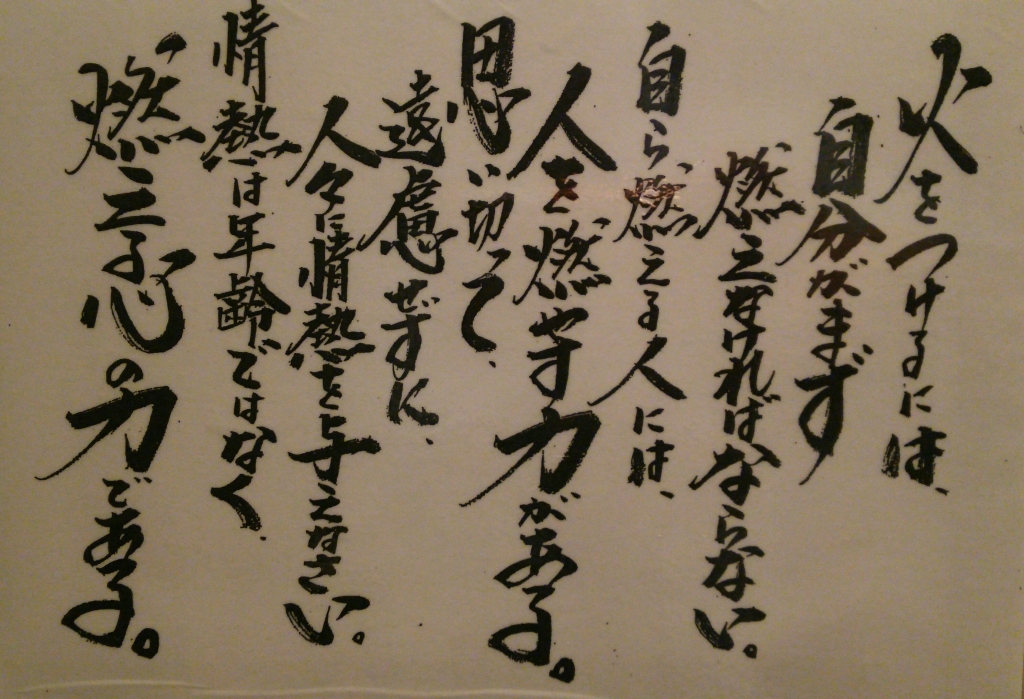 火をつけるには、
自分がまず
燃えなければならない。
自ら燃える人には、
人を燃やす力がある。
思い切って、
遠慮せずに、
人々に情熱を与えなさい。
情熱は年齢ではなく、
燃える心の力である。